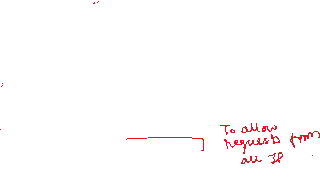 To allow
requests from
all IP